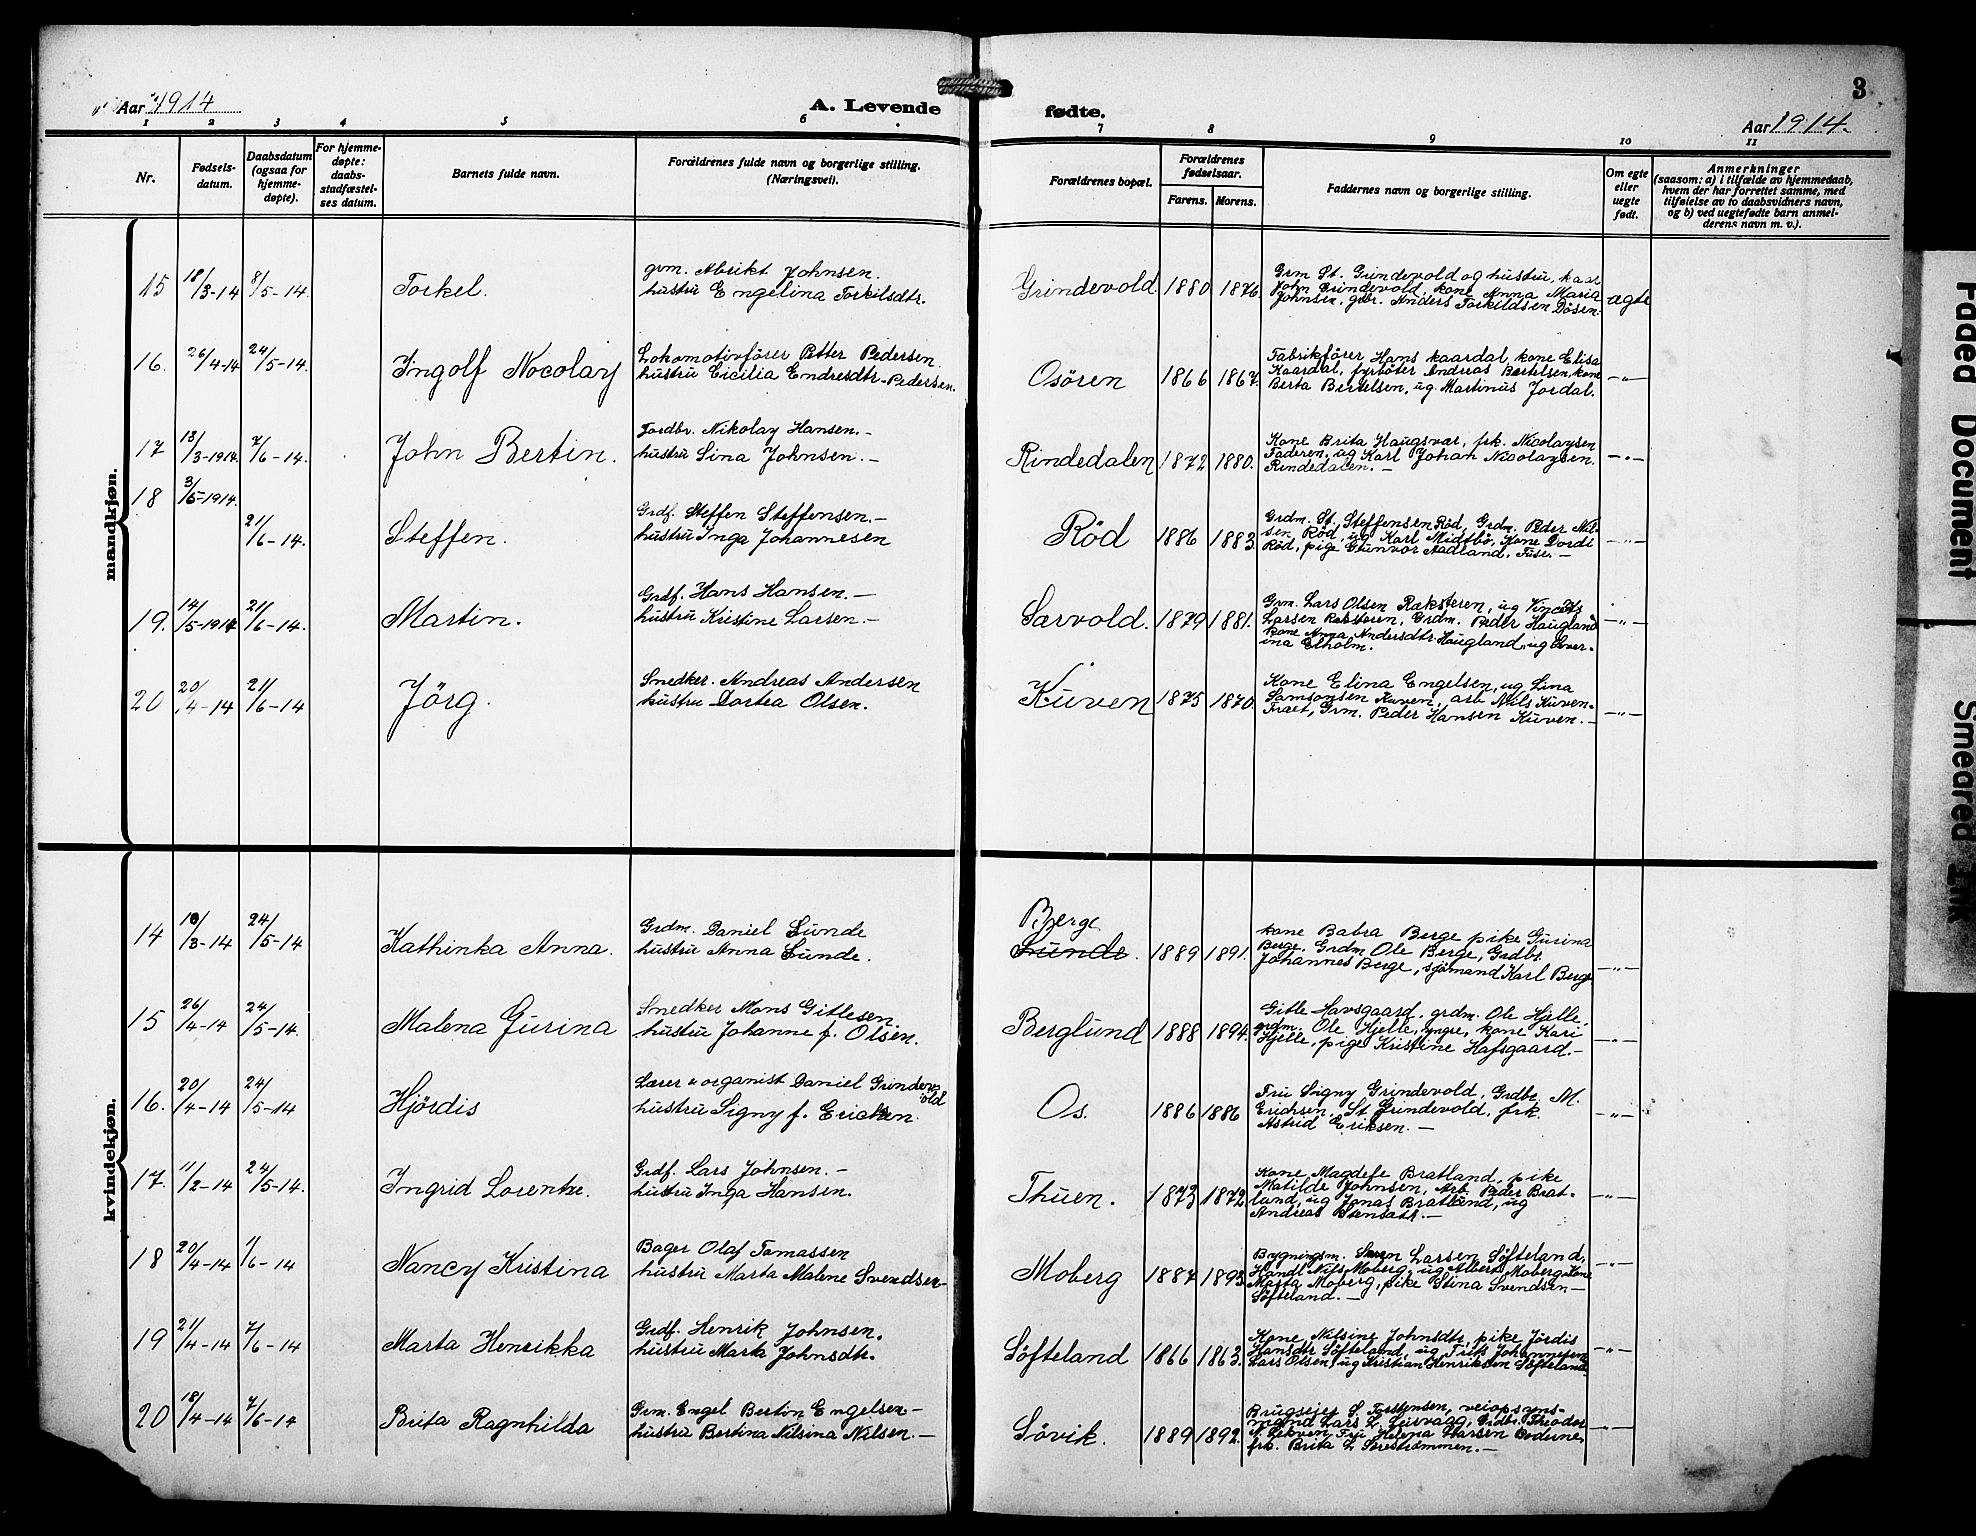 Aar 1914
A. Levende
fødte.
3
Aar 1914.
1 2 3 4 5 6 7 8 9 10 11
Nr.
Fødsels-
datum.
Daabsdatum
(ogsaa for
hjemme-
døpte).
For hjemme-
døpte:
daabs-
stadfæstel-
ses datum.
Barnets fulde navn.
Forældrenes fulde navn og borgerlige stilling.
(Næringsvei).
Forældrenes bopæl.
Forældrenes
fødselsaar.
Farens. Morens.
Faddernes navn og borgerlige stilling.
Om egte
eller
uegte
født.
Anmerkninger
(saasom: a) i tilfælde av hjemmedaab,
hvem der har forrettet samme, med
tilføielse av to daabsvidners navn,
og b) ved uegtefødte barn anmel-
derens navn m. v.).
mandkjøn.
15 18/3-14 8/5-14. Torkel.
grm. Abrikt Johnsen.
hustru Engelina Torkilsdtr.
Grindevold 1880 1876
Grm St. Grindevold og hustru, kaar
John Grindevold, kone Anna Maria
Johnsen, gbr. Anders Torkildsen Døsen.
ægte
16. 26/4-14 24/5-14. Ingolf Nocolay
Lokomotivfører Petter Pedersen
hustru Cicilia Endresdtr. Pedersen.
Osøren 1866 1867.
Fabrikfører Hans Kaardal, kone Elisa
Kaardal, fyrbøter Andreas Bertelsen, kone
Berta Bertelsen, ug Martinus Jordal.
—"—
17 13/3-1914. 7/6-14. John Bertin.
Jordbr. Nikolay Hansen.-
hustru Sina Johnsen.-
Rindedalen 1872 1880.
Kone Brita Haugsvar, frk. Nicolaysen
Faderen, ug Karl Johan Nicolaysen.
Rindedalen.-
—"—
18 3/5-1914. 21/6-14. Steffen.
Grdf. Steffen Steffensen.-
hustru Inga Johannesen
Röd 1886 1883
Grdm. St. Steffensen Röd, Grdm. Peder Nil-
sen Röd, ug Karl Midtbö, Kone Dordi
Röd, pige Gunvor Aadland, Fuse.-
—"—
19. 14/5-1914 21/6-14. Martin.
Grdf. Hans Hansen.-
hustru Kristine Larsen.-
Særvold. 1879 1881.
Grm. Lars Olsen Ræksteren, ug
Larsen Grdm. Peder Haugland
kone Anna Andersdtr. Haugland, ug Sever-
ina Elholm.
—"—
20 20/4-14 21/6-14 Jörg.
Snedker. Andreas Andersen
hustru Dortea Olsen.
Kuven 1875 1870
Kone Elina Engelsen, ug Lina
Samsonsen Kuven, arb Nils Kuven.
Træet, Grm. Peder Hansen Kuven.-
—"—
kvindekjøn.
14 10/3-14 24/5-14 Kathinka Anna.
Grdm. Daniel Lunde
hustru Anna Lunde.
Bjerge
Lunde. 1889 1891.
kone Babra Berge pike Gurina
Berge, Grdm Ole Berge, Grdbr
Johannes Berge, sjömand Karl Berge
—"—
15 26/4-14 24/5-14. Malena Gurina
Snedker Mons Gitlesen
hustru Johanne f. Olsen.
Berglund 1888 1894.
Gitle Havsgaard, grdm. Ole Hjelle,
grdm. Ole Hjelle, yngre, kone Kari
Hjelle, pige Kristine Hafsgaard.-
—"—
16. 20/4-14 24/5-14 Hjördis
Lærer & organist Daniel Grindev
old
hustru Signy f. Ericksen.
Os. 1886 1886
Fru Signy Grindevold, Grdbr. M.
Erichsen, St Grindevold, frk.
Astrid Eriksen.-
—"—
17. 11/2-14 24/5-14. Ingrid Lorentze.
Grdf. Lars Johnsen.-
hustru Inga Hansen.
Thuen. 1873 1872
Kone Magdele Bratland, pike
Matilde Johnsen, Arb. Peder Brat-
land, ug Jonas Bratland, ug
Andreas
—"—
18 20/4-14 1/6-14 Nancy Kristina
Bager Olaf Tomassen
hustru Marta Malene Svendsen-
Moberg 1887 1893
Bygningsm. Sören Larsen Söfteland,
Handl. Nils Moberg, ug Alberts Moberg, Kone
Marta Moberg, pike Stina Svendsen-
Söfteland.-
—"—
19 21/4-14 7/6-14 Marta Henrikka
Grdf. Henrik Johnsen.
hustru Marta Johnsdtr.
Söfteland 1866 1863.
Kone Nilsine Johnsdtr, pike Jördis
Hansdtr Söfteland, ug Frits Johannesen
Lars Olsen, ug Kristian Henriksen Söfteland
—"—
20 18/4-14 7/6-14 Brita Ragnhilda
Grm. Engel Bertin Engelsen-
hustru Bertina Nilsina Nilsen.-
Sövik. 1889 1892.
Brugseier S. Torstensen, veiopsyns-
mand Lars L. Leirvaag, Grdbr. Theodor
N. Lekven, Fru Helena Larsen
frk. Brita L. Strømmen.-
—"—
Faded Document
Smeared Ink